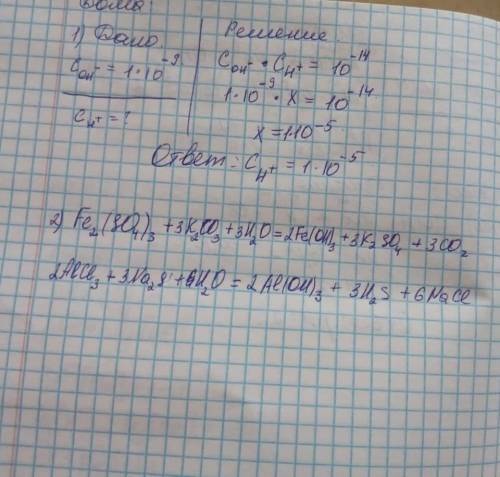 Дома:
1) Дано.
C_OH⁻ = 1·10⁻⁹
C_H⁺ = ?
Решение.
C_OH⁻ · C_H⁺ = 10⁻¹⁴
1·10⁻⁹ · x = 10⁻¹⁴
x = 1·10⁻⁵
Ответ: C_H⁺ = 1·10⁻⁵
2) Fe₂(SO₄)₃ + 3K₂CO₃ + 3H₂O = 2Fe(OH)₃ + 3K₂SO₄ + 3CO₂
2AlCl₃ + 3Na₂S + 6H₂O = 2Al(OH)₃ + 3H₂S + 6NaCl